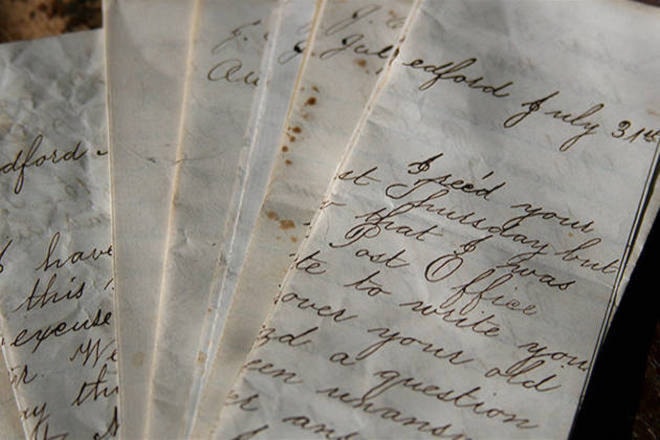 dford
I have
this
excuse
We
J.
Au
J.
Jul
edford July 31st
I rec'd your
st Thursday but
that I was
Post Office
te to write you
over your old
a question
een unansw